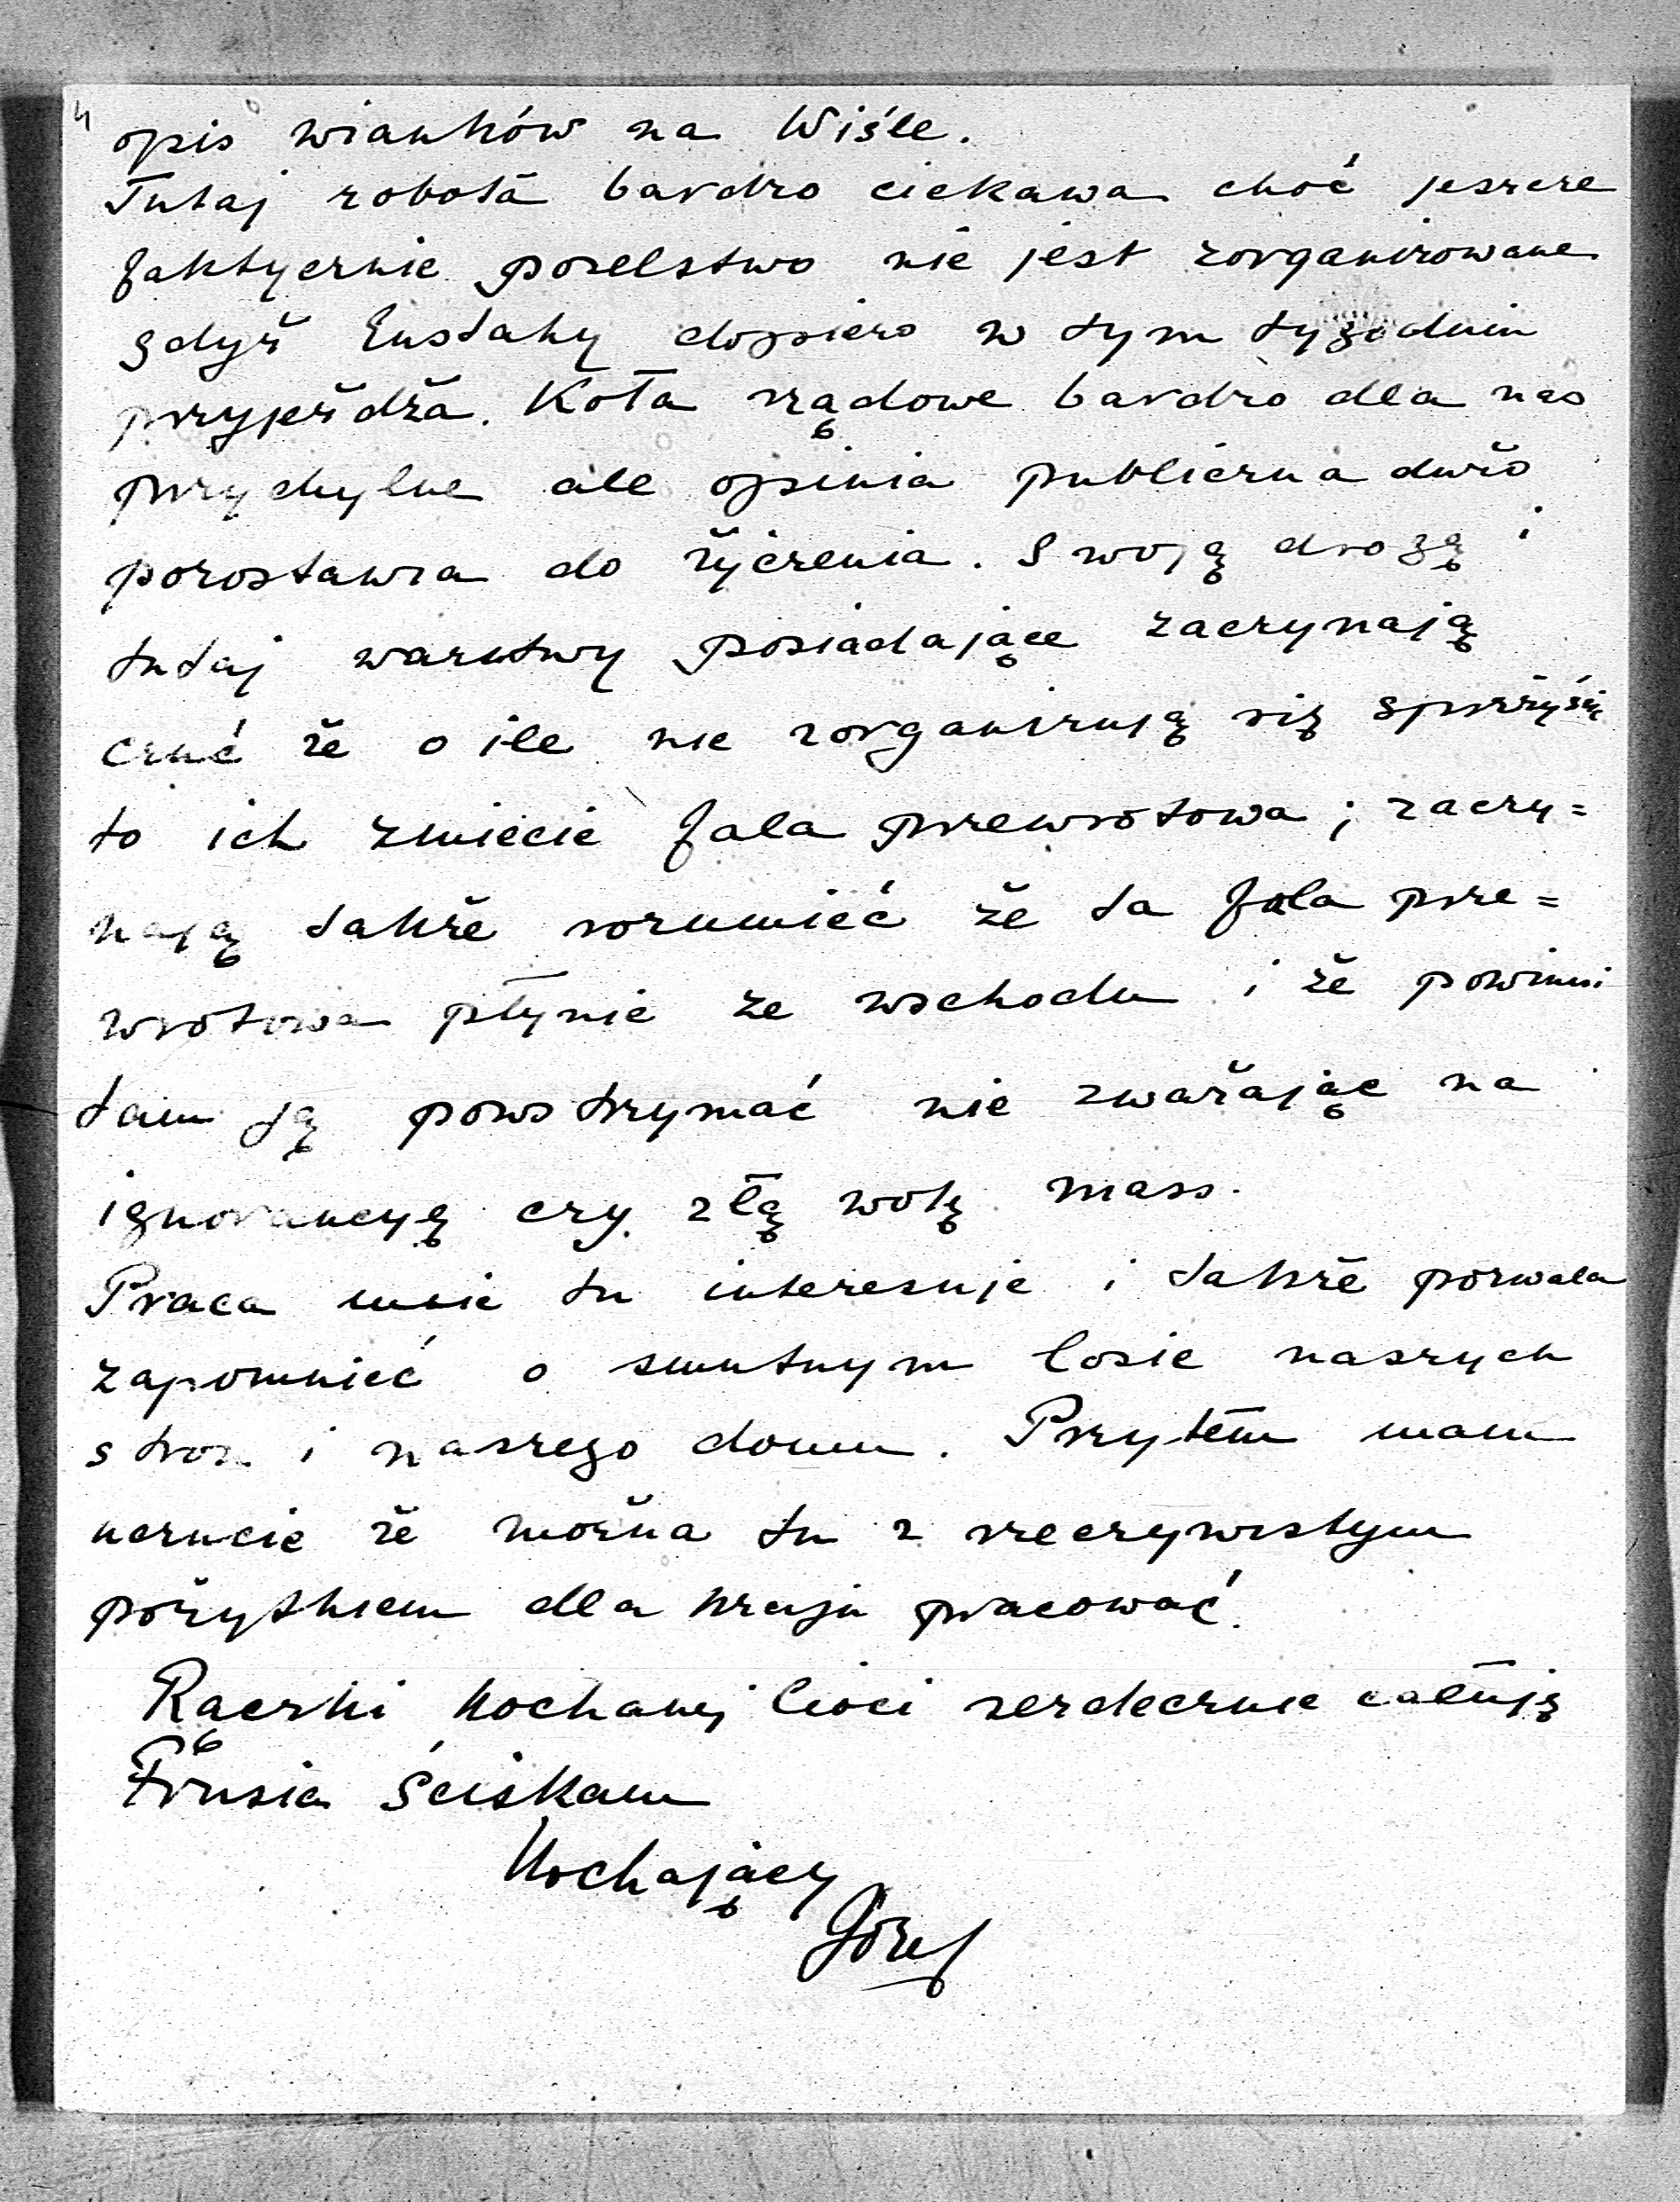 4
opis wianków na Wiśle.
Tutaj robota bardzo ciekawa choć jeszcze
faktycznie poselstwo nie jest zorganizowane
gdyż Eustachy dopiero w tym tygodniu
przyjeżdża. Koła rządowe bardzo dla nas
przychylne ale opinia publiczna dużo
pozostawia do życzenia. Swoją drogą i
tutaj warstwy posiadające zaczynają
czuć że o ile nie zorganizują się sprężyście
to ich zmiecie fala przewrotowa; zaczy=
nają także rozumieć że ta fala prze=
wrotowa płynie ze wschodu i że powinni
tam ją powstrzymać nie zważając na
ignorancyę czy złą wolę mass.
Praca mnie tu interesuje i także pozwala
zapomnieć o smutnym losie naszych
stron i naszego domu. Przytém mam
uczucie że można tu z rzeczywistym
pożytkiem dla kraju pracować.
Rączki kochanej Cioci serdecznie całuję
ściskam
Kochający
Józef